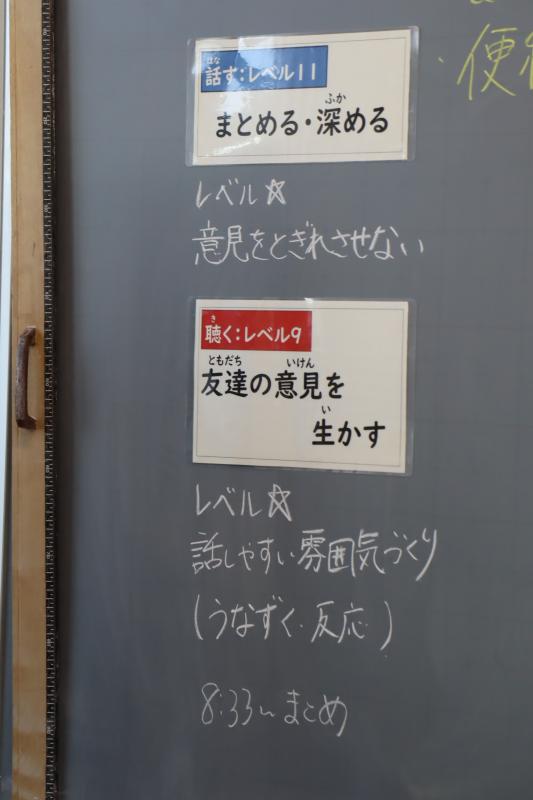 話す：レベル11
まとめる・深める
レベル☆
意見をとぎれさせない
聴く：レベル9
友達の意見を
生かす
レベル☆
話しやすい雰囲気づくり
（うなずく・反応）
8:33〜まとめ